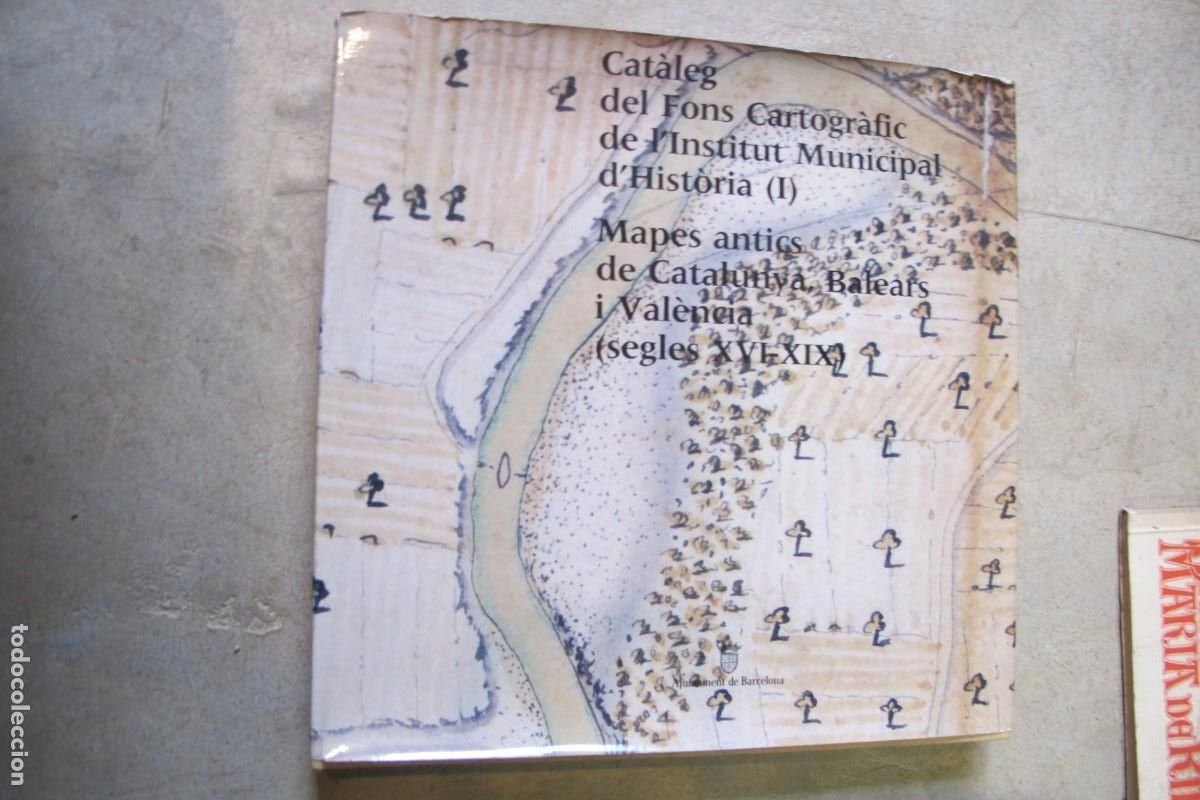 Catàleg
del Fons Cartogràfic
de l'Institut Municipal
d'Història (I)
Mapes antics
de Catalunya, Balears
i València
(segles XVI-XIX)
Ajuntament de Barcelona
todocoleccion
MARTÍN DE RI